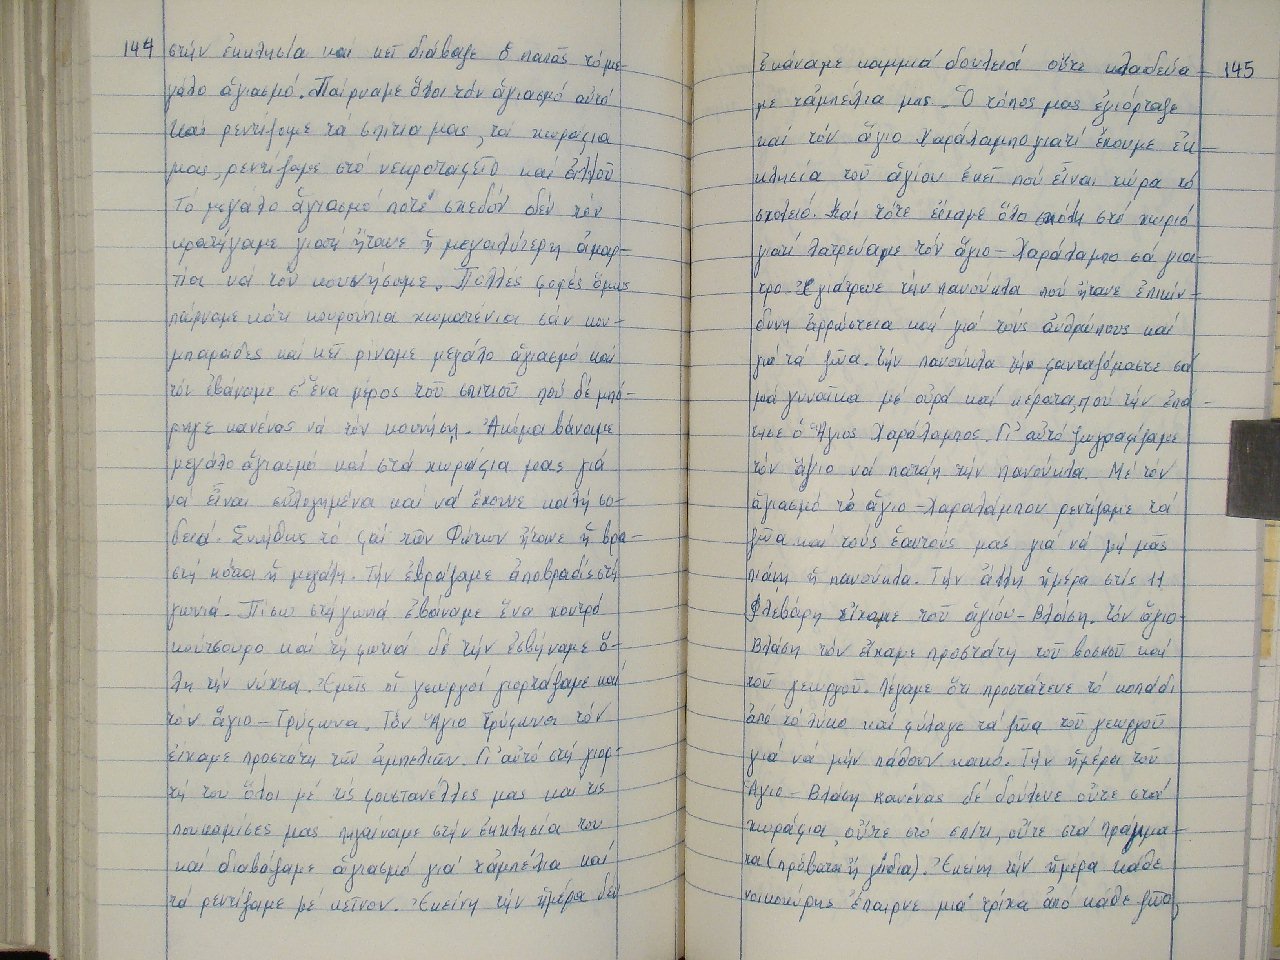 144
στήν ἐκκλησία καί κεῖ διάβαζε ὁ παπᾶς τό με-
γάλο ἁγιασμό. Παίρναμε ὅλοι τόν ἁγιασμό αὐτό
καί ρεντίζομε τά σπίτια μας, τά χωράφια
μας, ρεντίζαμε στό νεκροταφεῖο καί ἀλλοῦ
Τό μεγάλο ἁγιασμό ποτέ σχεδόν δέν τόν
κρατήγαμε γιατί ἤτανε ἡ μεγαλύτερη ἁμαρ-
τία νά τόν κουνήσομε. Πολλές φορές ὅμως
παίρναμε κάτι κουρούπια χωματένια σάν κου-
μπαράδες καί κεῖ ρίναμε μεγάλο ἁγιασμό καί
τόν ἐβάναμε σ' ἕνα μέρος τοῦ σπιτιοῦ πού δέ μπό-
ρηγε κανένας νά τόν κουνήση. Ἀκόμα βάναμε
μεγάλο ἁγιασμό καί στά χωράφια μας γιά
νά εἶναι εὐλογημένα καί νά ἔχουνε καλή σο-
δειά. Συνήθως τό φαΐ τῶν Φώτων ἤτανε ἡ βρα-
στή κότα ἡ μεγάλη. Τήν ἐβράζαμε ἀποβραδίς στή
γωνιά. Πίσω στή γωνιά ἐβάναμε ἕνα χοντρό
κούτσουρο καί τή φωτιά δέ τήν ἐσβήναμε ὅ-
λη τήν νύχτα. Ἐμεῖς οἱ γεωργοί γιορτάζαμε καί
τόν ἅγιο-Τρύφωνα. Τόν Ἅγιο Τρύφωνα τόν
εἴχαμε προστάτη τῶν ἀμπελιῶν. Γι' αὐτό στή γιορ-
τή του ὅλοι μέ τίς φουστανέλλες μας καί τίς
πουκαμίσες μας πηγαίναμε στήν ἐκκλησία του
καί διαβάζαμε ἁγιασμό γιά τἀμπέλια καί
τά ρεντίζαμε μέ κεῖνον. Ἐκείνη τήν ἡμέρα δέν
145
ἐκάναμε καμμιά δουλειά οὔτε κλαδεύα-
με τἀμπέλια μας. Ὁ τόπος μας ἐγιόρταζε
καί τόν ἅγιο Χαράλαμπο γιατί ἔχουμε ἐκ-
κλησία τοῦ ἁγίου ἐκεῖ πού εἶναι τώρα τό
σχολειό. Καί τότε εἴχαμε ὅλο στό χωριό
γιατί λατρεύαμε τόν ἅγιο-Χαράλαμπο σά για-
τρο. Ἐγιάτρευε τήν πανούκλα πού ἤτανε ἐπικίν-
δυνη ἀρρώστεια καί γιά τούς ἀνθρώπους καί
γιά τά ζῶα. Τήν πανούκλα τήν φανταζόμαστε σά
μιά γυναῖκα μέ οὐρά καί κέρατα, πού τήν ἐπά-
τησε ὁ Ἅγιος Χαράλαμπος. Γι' αὐτό ζωγραφίζαμε
τόν ἅγιο νά πατάη τήν πανούκλα. Μέ τόν
ἁγιασμό τό ἅγιο-Χαραλάμπου ρεντίζαμε τά
ζῶα καί τούς ἑαυτούς μας γιά νά μή μᾶς
πιάνη ἡ πανούκλα. Τήν ἄλλη ἡμέρα στίς 11
Φλεβάρη εἴχαμε τοῦ ἁγίου-Βλάση. Τόν ἅγιο-
Βλάση τόν εἴχαμε προστάτη τοῦ βοσκοῦ καί
τοῦ γεωργοῦ. Λέγαμε ὅτι προστάτευε τό κοπάδι
ἀπό τό λύκο καί φύλαγε τά ζῶα τοῦ γεωργοῦ
γιά νά μήν πάθουν κακό. Τήν ἡμέρα τοῦ
Ἁγιο-Βλάση κανένας δέ δούλευε οὔτε στά
χωράφια, οὔτε στό σπίτι, οὔτε στά πράμμα-
τα (πρόβατα ἤ γίδια). Ἐκείνη τήν ἡμέρα κάθε
νοικοκύρης ἔπαιρνε μιά τρίχα ἀπό κάθε ζῶο,